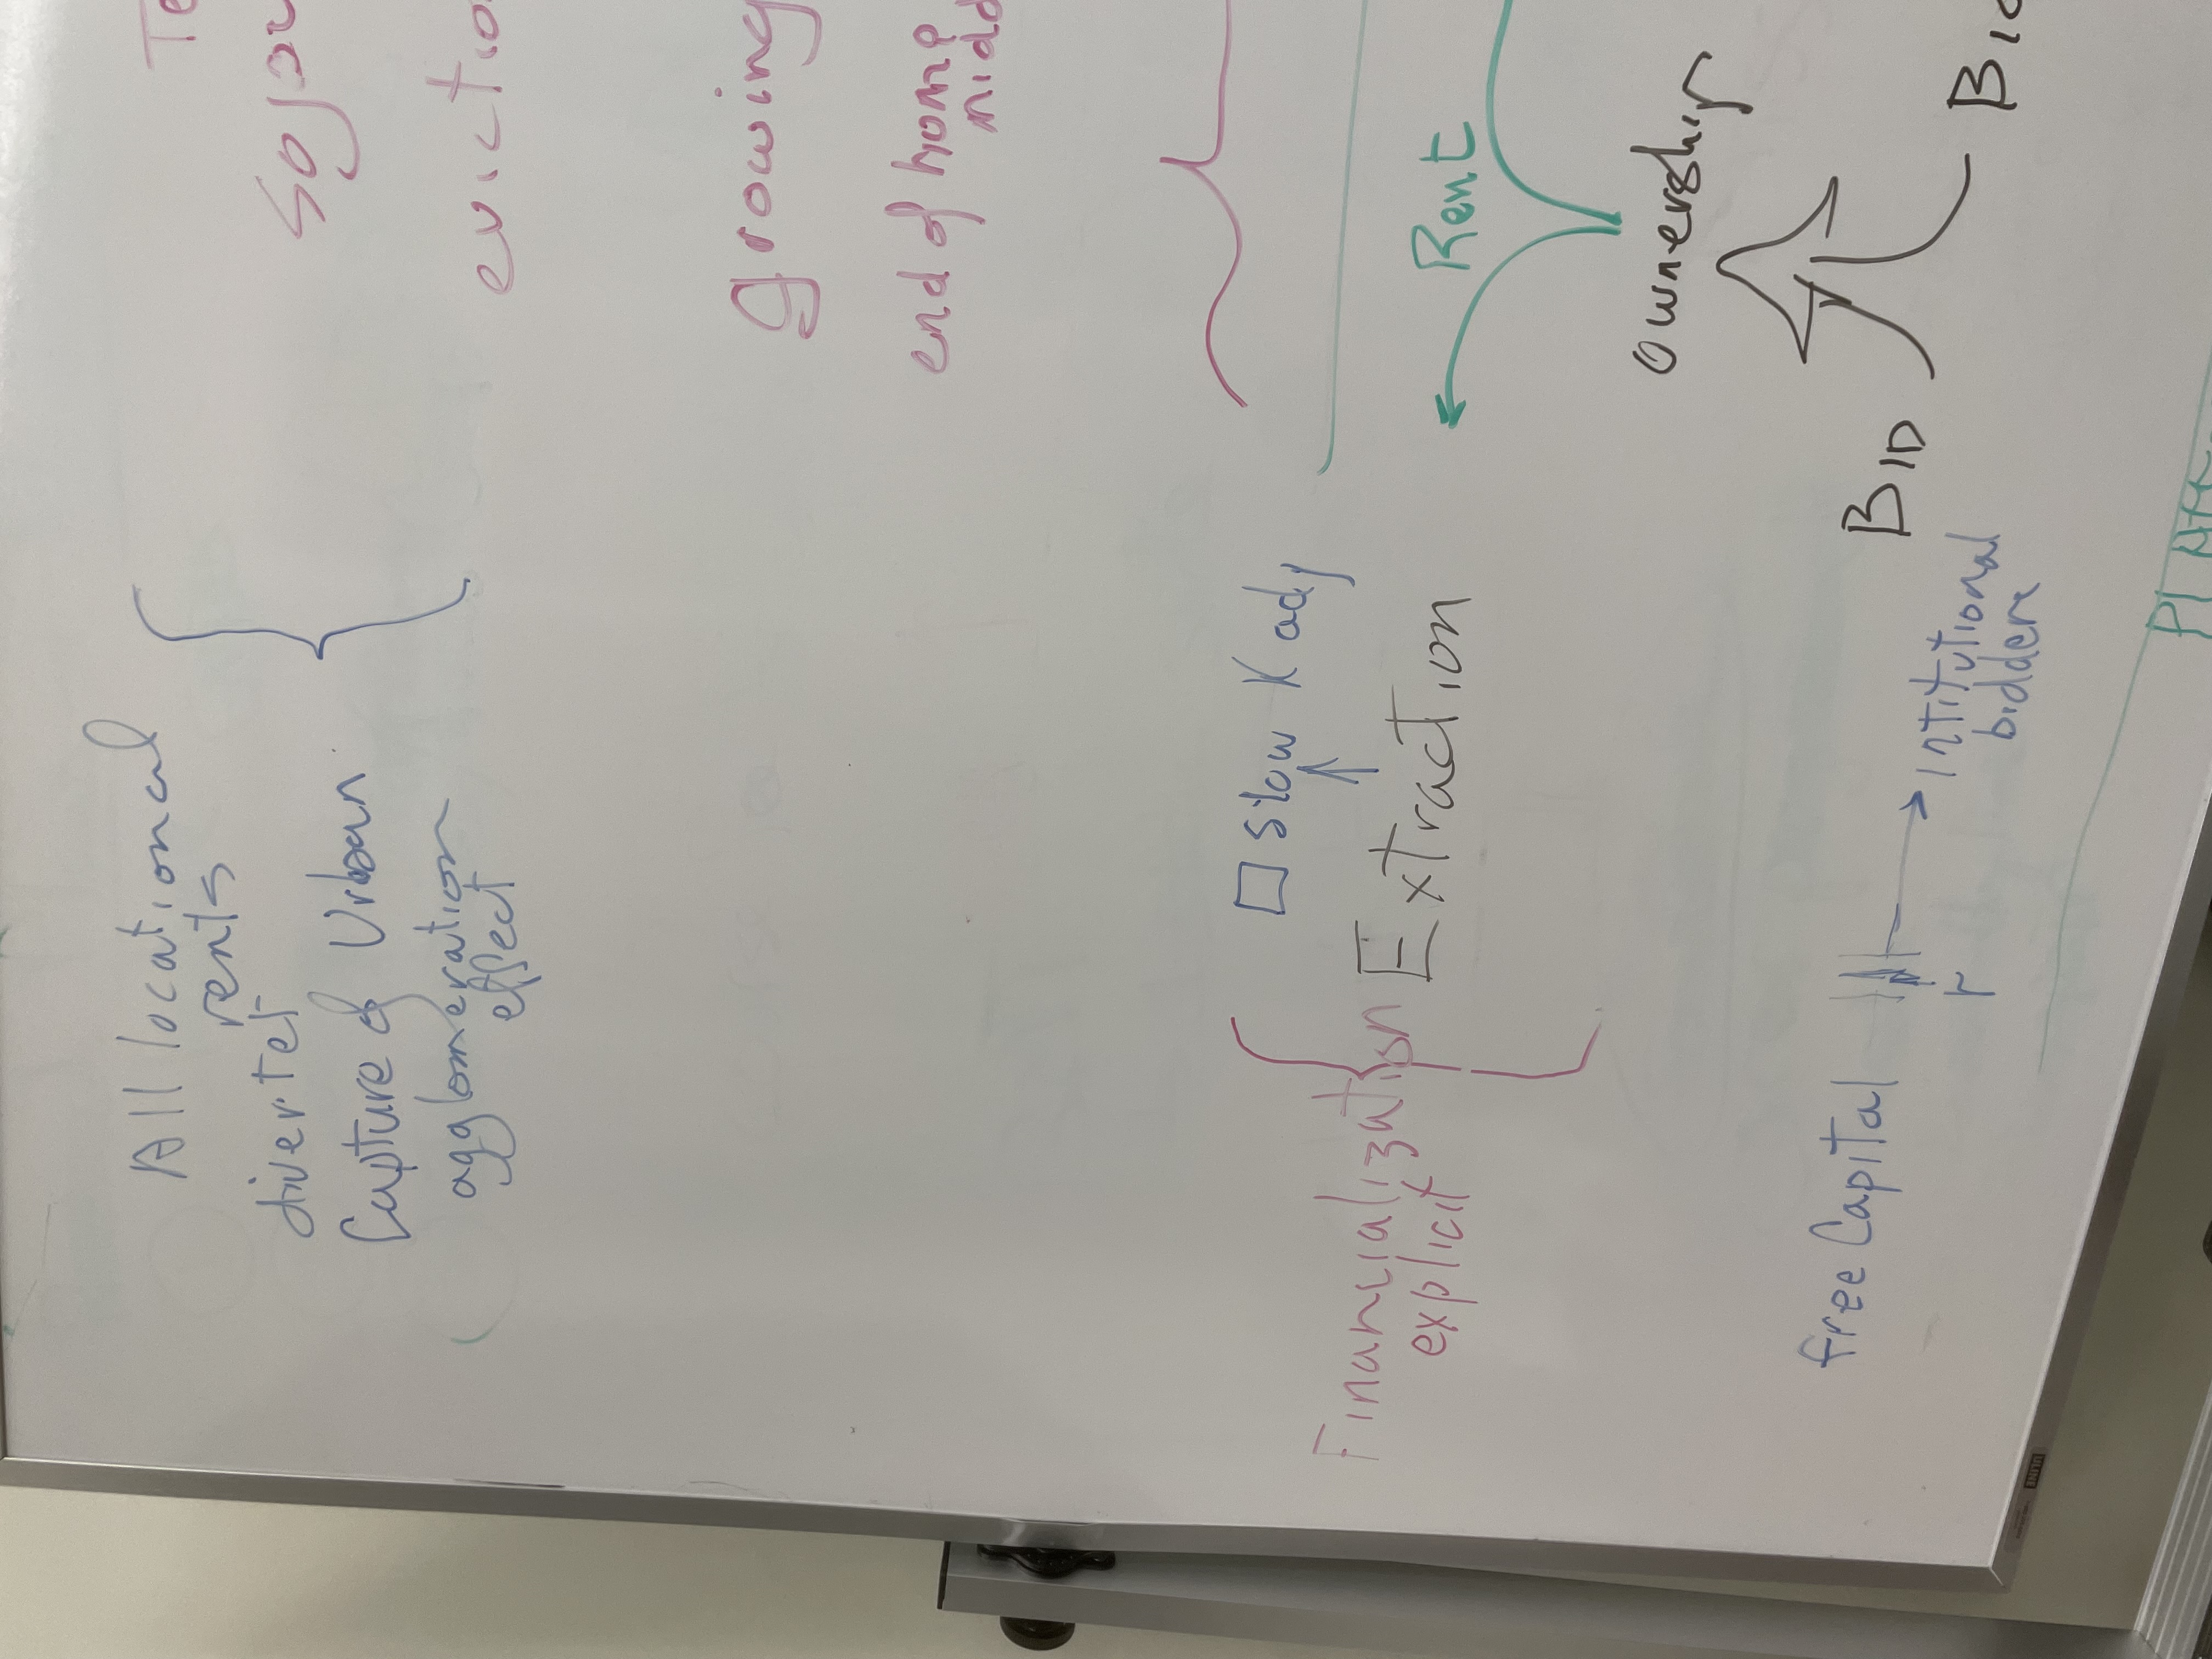 All locational
rents
divertet
Capture of Urban
agglomeration
effect
Te
sojou
evictio
growing
end of home
midd
□ Slow K adj
Financialization
explicit
Extraction
Rent
ownership
free Capital
r
intitutional
bidders
BID
BID
ULINE